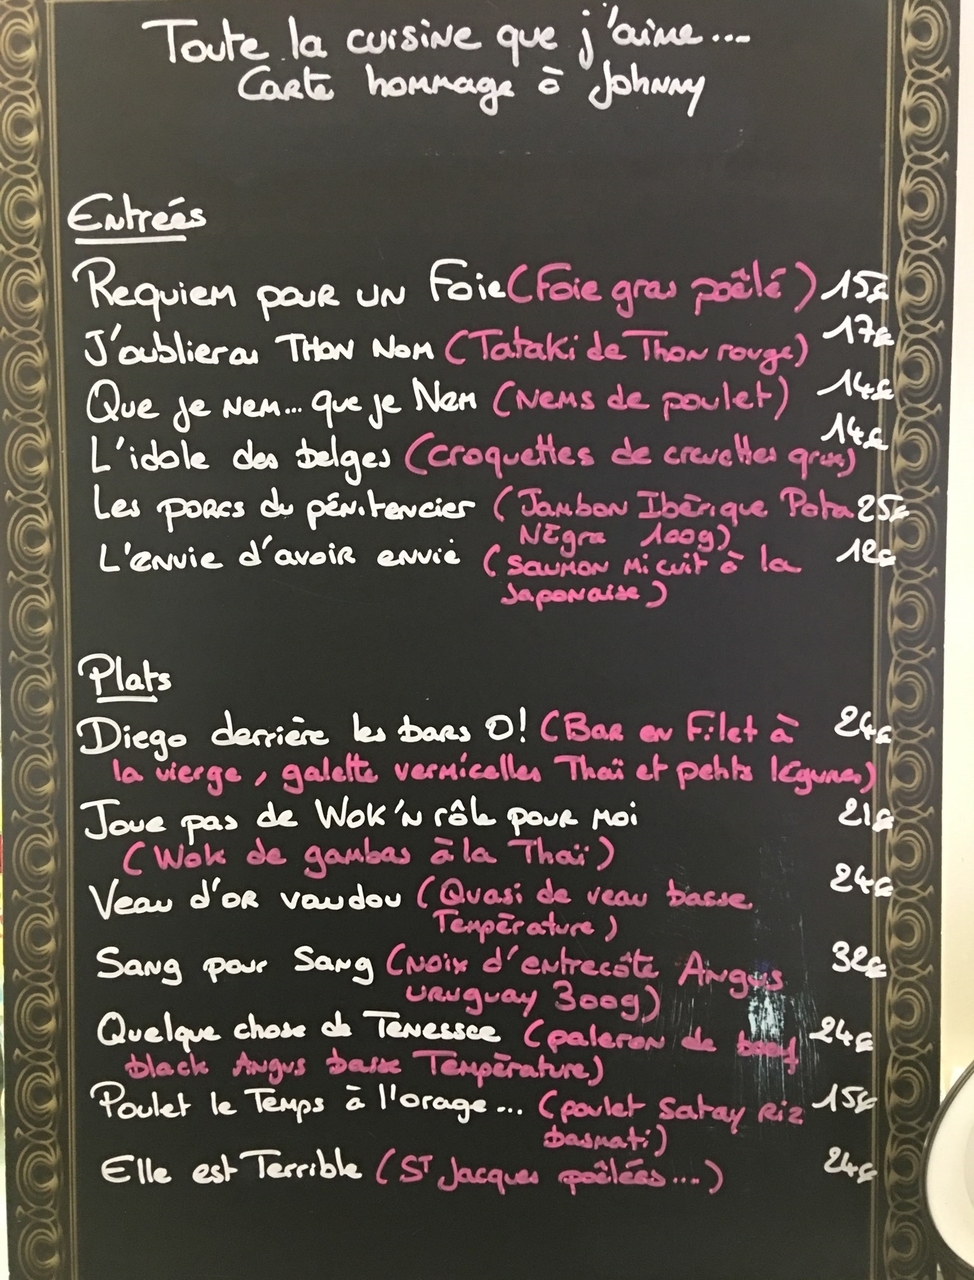 Toute la cuisine que j'aime...
Carte hommage à Johnny
Entrées
Requiem pour un Foie (Foie gras poêlé) 15€
J'oublierai Thon Nom (Tataki de Thon rouge) 17€
Que je Nem... que je Nem (Nems de poulet) 14€
L'idole des belges (croquettes de crevettes grises) 14€
Les porcs du pénitencier (Jambon Ibérique Pata 25€
Négra 100g)
L'envie d'avoir envie (saumon mi cuit à la 12€
Japonaise)
Plats
Diego derrière les bars O! (Bar en Filet à 24€
la vierge, galette vermicelles Thaï et petits légumes)
Joue pas de Wok'n rôle pour moi 21€
(Wok de gambas à la Thaï)
Veau d'or vaudou (Quasi de veau basse 24€
Température)
Sang pour Sang (Noix d'entrecôte Angus 32€
Uruguay 300g)
Quelque chose de Tenessee (paleron de boeuf 24€
black Angus basse Température)
Poulet le Temps à l'orage... (poulet Satay Riz 15€
basmati)
Elle est Terrible (St Jacques poêlées...) 24€